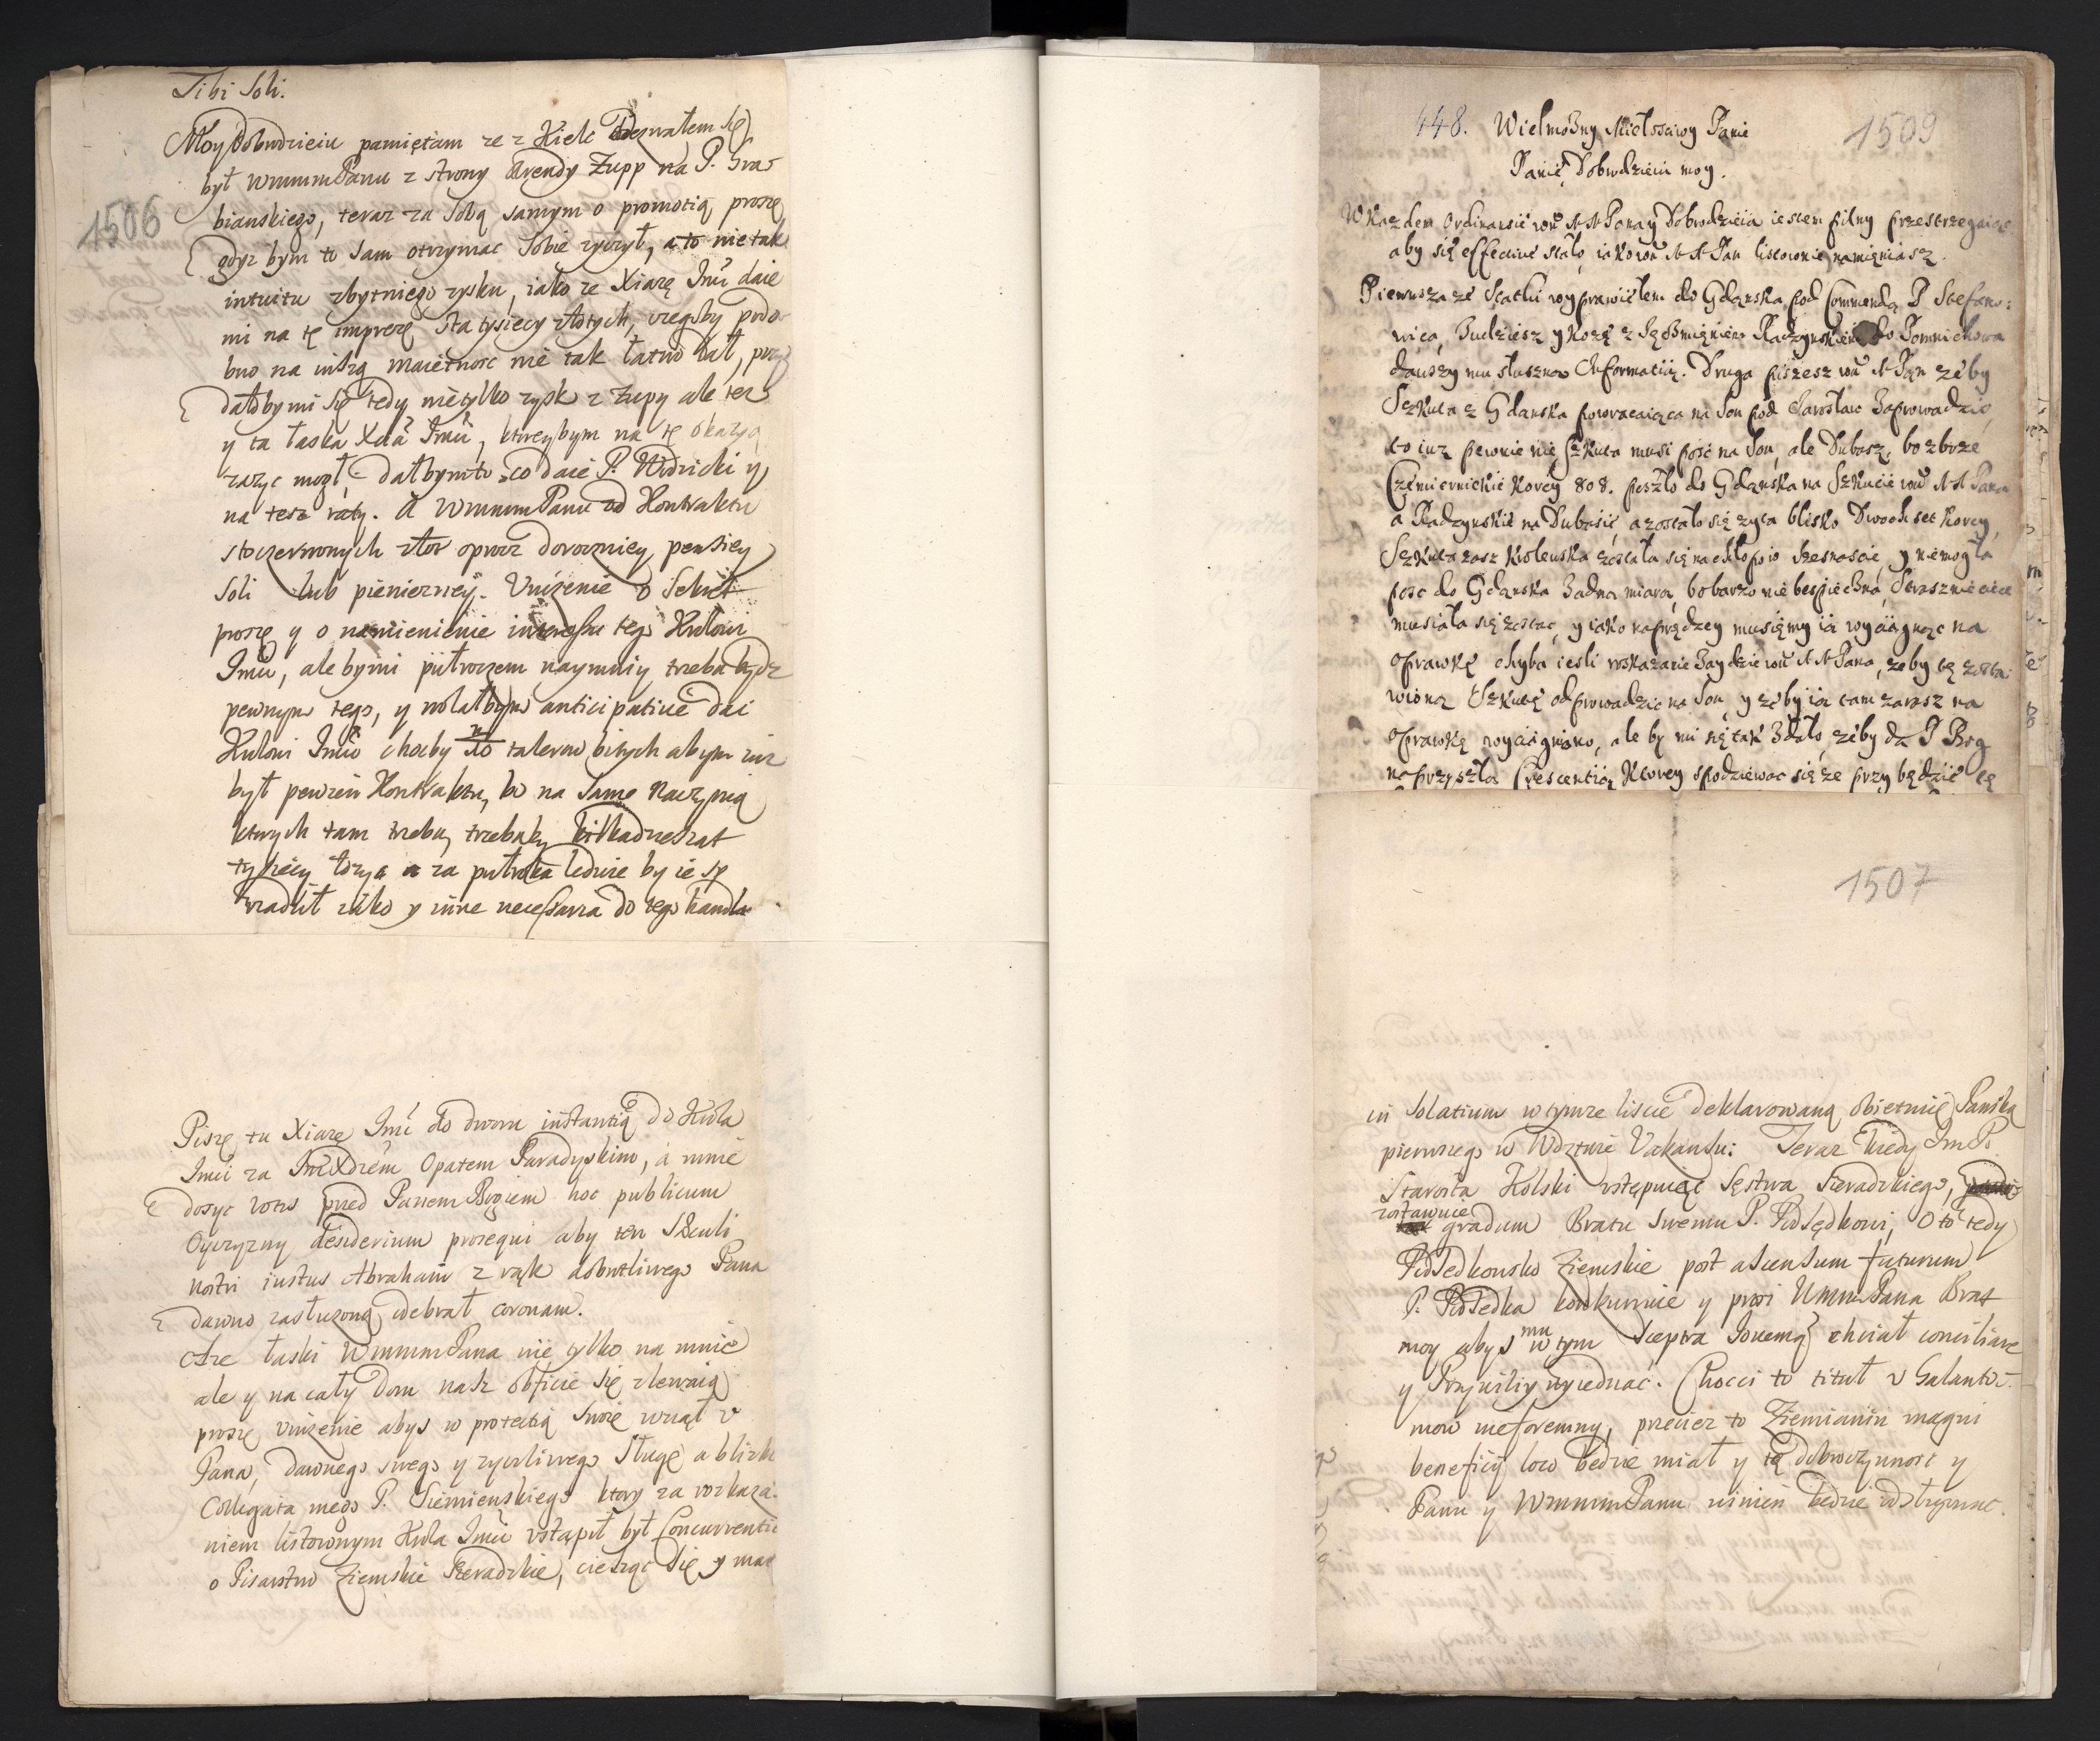 Tibi Soli.
Moy Dobrodzieiu pamiętam ze z Kielc odezwałem się
był WmmmPanu z strony Arendy Zupp na P. Gra-
bianskiego, teraz za sobą samym o promotią proszę
gdyz bym to sam otrzymac sobie zyczył, a to nie tak
intuitu zbytniego zysku, iako ze Xiąrzę Imć daie
mi na tę imprezę sta tysięcy złotych, czegoby podo-
bno na inszą maiętnosc nie tak łatwo dał,
dałoby mi się tedy nie tylko zysk z Zupy ale tez
y ta łaska Xcia Imci, ktoreybym na tę okazyą
zazyc mogł, dałbym to co daie P. Wodzicki y
na tesz raty. A WmmmPanu od Kontraktu
sto czerwonych złot oprocz doroczniey pensiey
Soli lub pienięzney. Uniżenie o Sekret
proszę y o namienienie interessu tego Krolowi
Imci, ale bymi pułroczem naymniey trzeba bydz
pewnym tego, y wolałbym anticipative dac
Krolowi Imci choćby talerow bitych abym iuz
był pewien Kontraktu, bo na same Naczynia
ktorych tam trzeba, trzebaby kilkadziesiat
tysięcy łozyc a za pułroka ledwie by ie sp
rządził iako y inne necessaria do tego handlu
1506
Piszę tu Xiąrzę Imć do dworu instantią do Krola
Imci za Imć Xdzem Opatem Paradyskim, á mnie
dosyc przed Panem Bogiem hoc publicum
Oyczyzny desiderium prosequi aby ten Sęculi
nostri iustus Abraham z rąk dobrotliwego Pana
dawno zasłuzoną odebrał coronam.
A ze łaski WmmmPana nie tylko na mnie
ale y na cały Dom nasz obficie się zlewaią
proszę Unizenie abys w protectią swoię wziął u
Pana, dawnego swego y zyczliwego sługę a blizk
Collegata mego P. Siemienskiego ktory za rozkaza-
niem listownym Krola Imci ustąpił był Concurrentie
o Pisarstwo Ziemskie Sieradzkie, ciesząc się y maiąc
448. Wielmozny Miełosciwy Panie
Panie Dobrodzieiu moy.
1509
W kazdem Ordinansie wm M M Pana y Dobrodzieia iestem pilny przestrzegaiąc
aby się effective stało, iako wm M M Pan listownie namieniasz.
Pierwsza ze Statki wyprawiełem do Gdanska pod Commendą P Stefano:
wica, Budzisz y Kozę z Radzynskiem do Pomniechowa
dawszy mu słuszną Informatią. Druga piszesz wm M Pan zeby
Szkuta z Gdanska powracaiąca na Son pod Jarosław zaprowadzic,
to iuz pewnie nie szkuta musi posc na Son, ale Dubasz, bo zboze
Czemiernickie korcy 808. poszło do Gdanska na Szkucie wm M M Pana
a Radzynskie na Dubasie, a zostało się zyta blisko Dwochset Korcy,
Szkuta zasz Krolewska została się na chłopow szesnascie, y niemogła
posc do Gdanska zadną miarą, bo barzo nie bespieczna, Strasznie ciecze
musiała się zostac, y iako naprędzey musięmy ią wyciągnąc na
Oprawkę chyba iesli rozkazanie zaydzie wm M M Pana, zeby tę zosta-
wioną Szkutę odprowadzic na Son, y zeby ią tam zarasz na
oprawkę wyciągniono, ale by mi się tak zdało, zeby da P Bog
na przyszłą Crescentią, ktorey spodziewac się ze przybędzie tę
1507
in Solatium w tymze liscie deklarowaną obietnicę Panską
pierwszego w Wdztwie Vakansu: Teraz kiedy Im P.
Starosta Kolski ustępuiąc Sęstwa Sieradzkiego,
zostawuie gradum Bratu swemu P. Podsędkowi, O to tedy
Podsedkowsko Ziemskie post ascensum futurum
P. Podsedka konkurruie y prosi UmmPana Brat
moy abys mu w tym Sceptra Iovemq chciał conciliare
y Przywiley wyiednać. Chocci to tituł u Galantu-
mow nieforemny, przeciez to Ziemianin magni
beneficij loco będzie miał y tę dobroczynnosc y
Panu y WmmmPanu winien będzie odsługiwac.